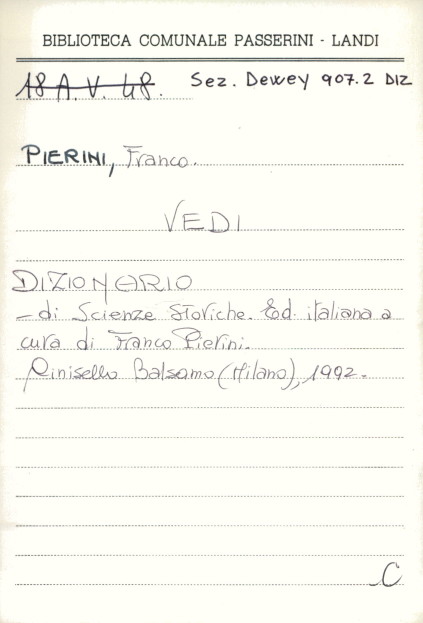 BIBLIOTECA COMUNALE PASSERINI - LANDI
18 A. V. 48. Sez. Dewey 907.2 DIZ
PIERINI, Franco.
VEDI
DIZIONARIO
- di Scienze Storiche. Ed. italiana a
cura di Franco Pierini.
Cinisello Balsamo (Milano), 1992.-
C